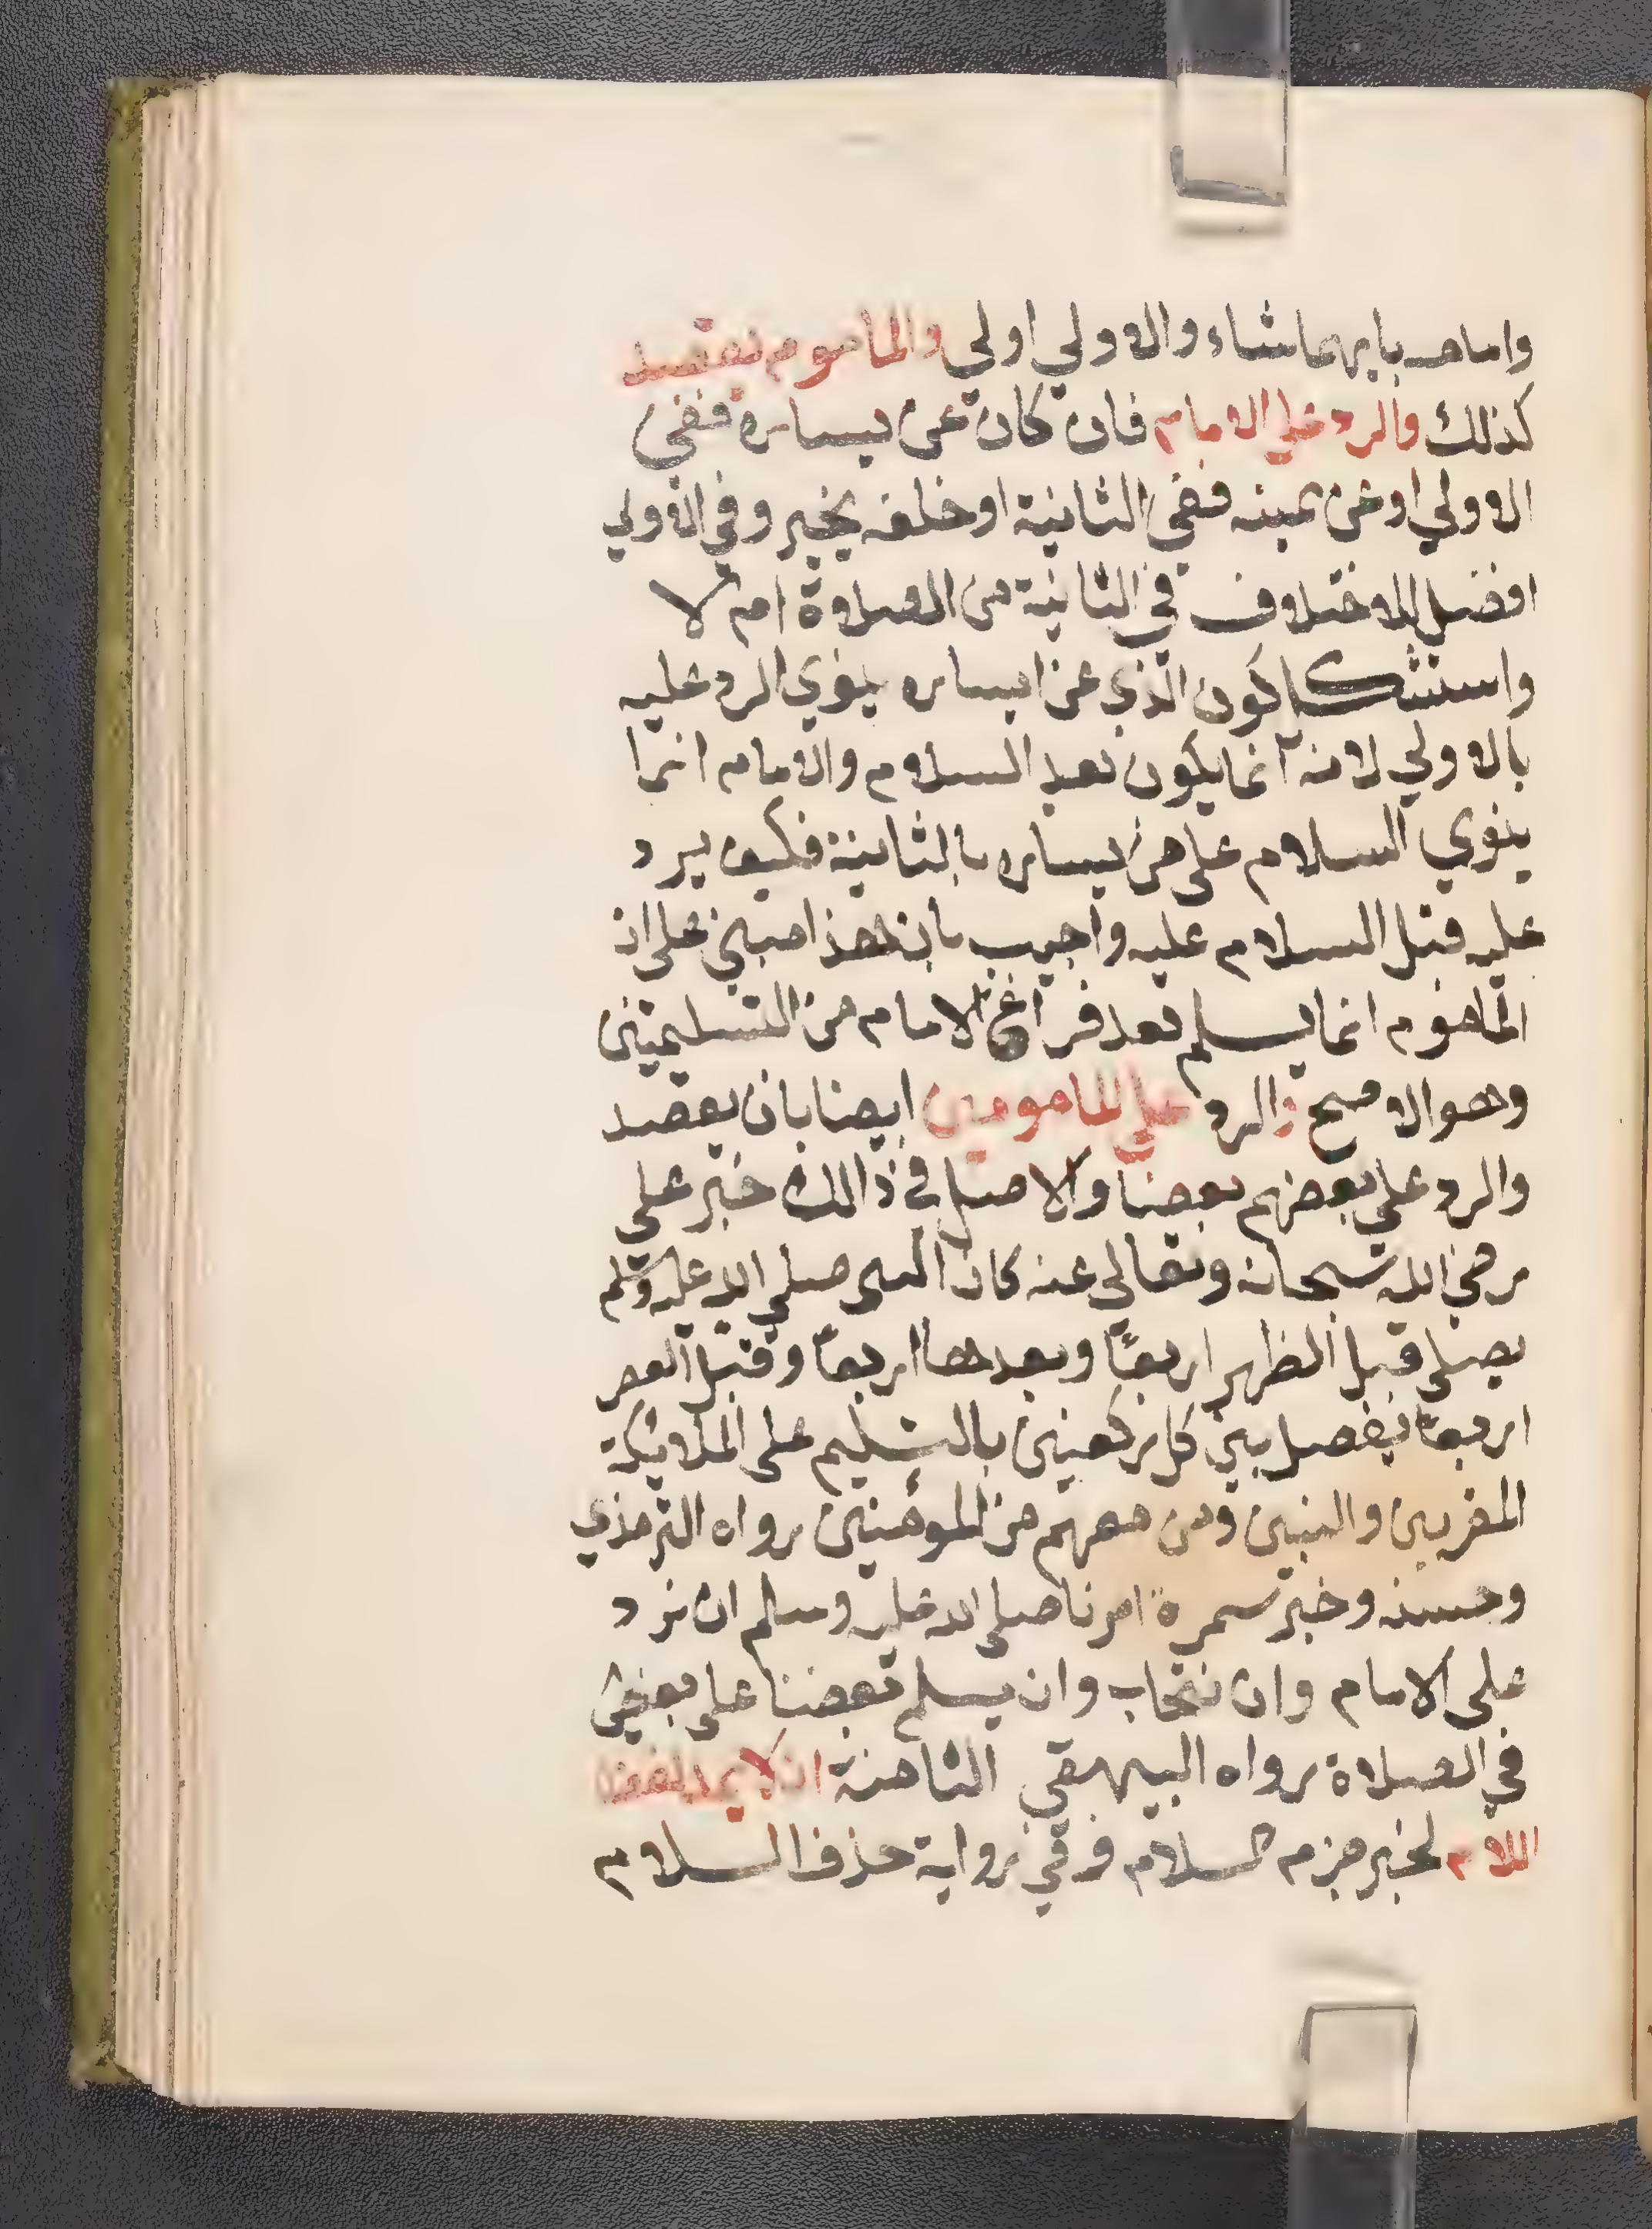 وامامه بايهما شاء والاولي اولي والماموم يقصد
كذلك والرد علي الامام فان كان عن يساره ففي
الاولي او عن يمينه ففي الثانية او خلفه يخير وفي الاولي
افضل للاختلاف في الثانية من الصلاة ام لا
واستشكل كون الذي عن ايساره ينوي الرد عليه
بالاولي لانه انما يكون بعد السلام والامام انما
ينوي السلام على من يساره بالثانية فكيف يرد
عليه قبل السلام عليه واجيب بان هذا مبني على ان
الماموم انما يسلم بعد فراغ الامام من التسليمتين
وهو الاصح والرد علي المامومين ايضا بان يقصد
والرد علي بعضهم بعضا والاصل في ذالك خبر علي
رضي الله سبحانه وتعالي عنه كان النبي صلي الله عليه وسلم
يصلي قبل الظهر اربعًا وبعدها اربعًا وقبل العصر
اربعًا يفصل بين كل ركعتين بالتسليم على الملائكة
المقربين والنبيين ومن معهم من المومنين رواه الترمذي
وحسنه وخبر سمرة امرنا صلى الله عليه وسلم ان نرد
على الامام وان نتحاب وان يسلم بعضنا على بعض
في الصلاة رواه البيهقي الثامنة ان لا يمد لفظ
اللام لخبر جزم السلام وفي رواية حذف السلام